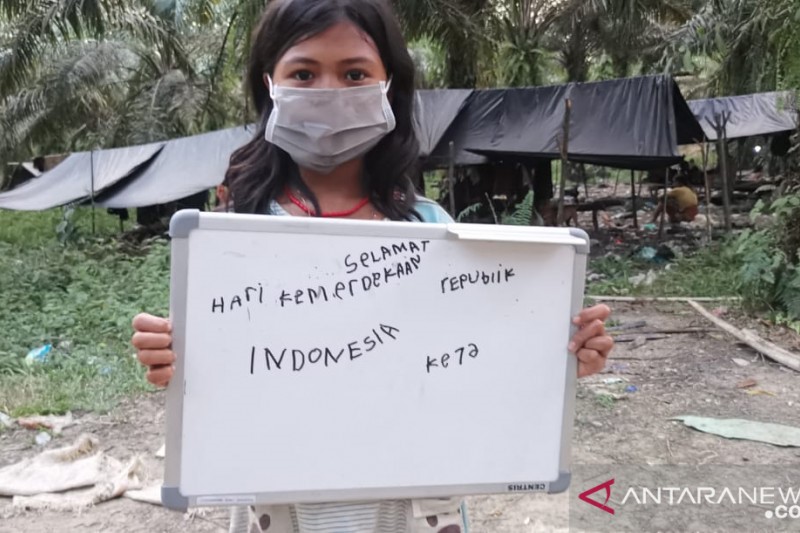 SeLAMAT
HAri KeMerDeKAAN rEPUBliK
INDONESIA
CENTRIS
ANTARANEW
.co